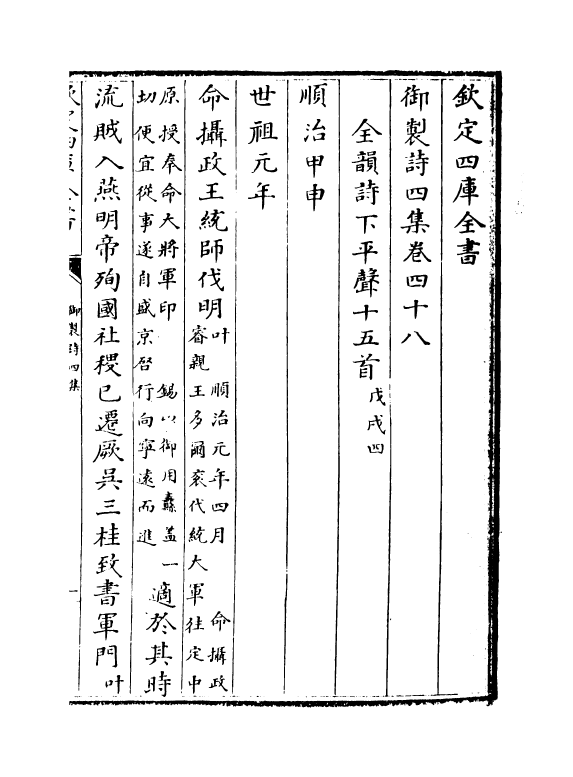 欽定四庫全書
御製詩四集卷四十八
全韻詩下平聲十五首戊戌四
順治甲申
世祖元年
命攝政王統師伐明叶順治元年四月 命攝政
睿親王多爾袞代統大軍往定中
原授奉命大將軍印 錫以御用纛蓋一
切便宜從事遂自盛京啓行向寧遠而進適於其時
流賊入燕明帝殉國社稷已遷厥吳三桂致書軍門叶
御製詩四集
一